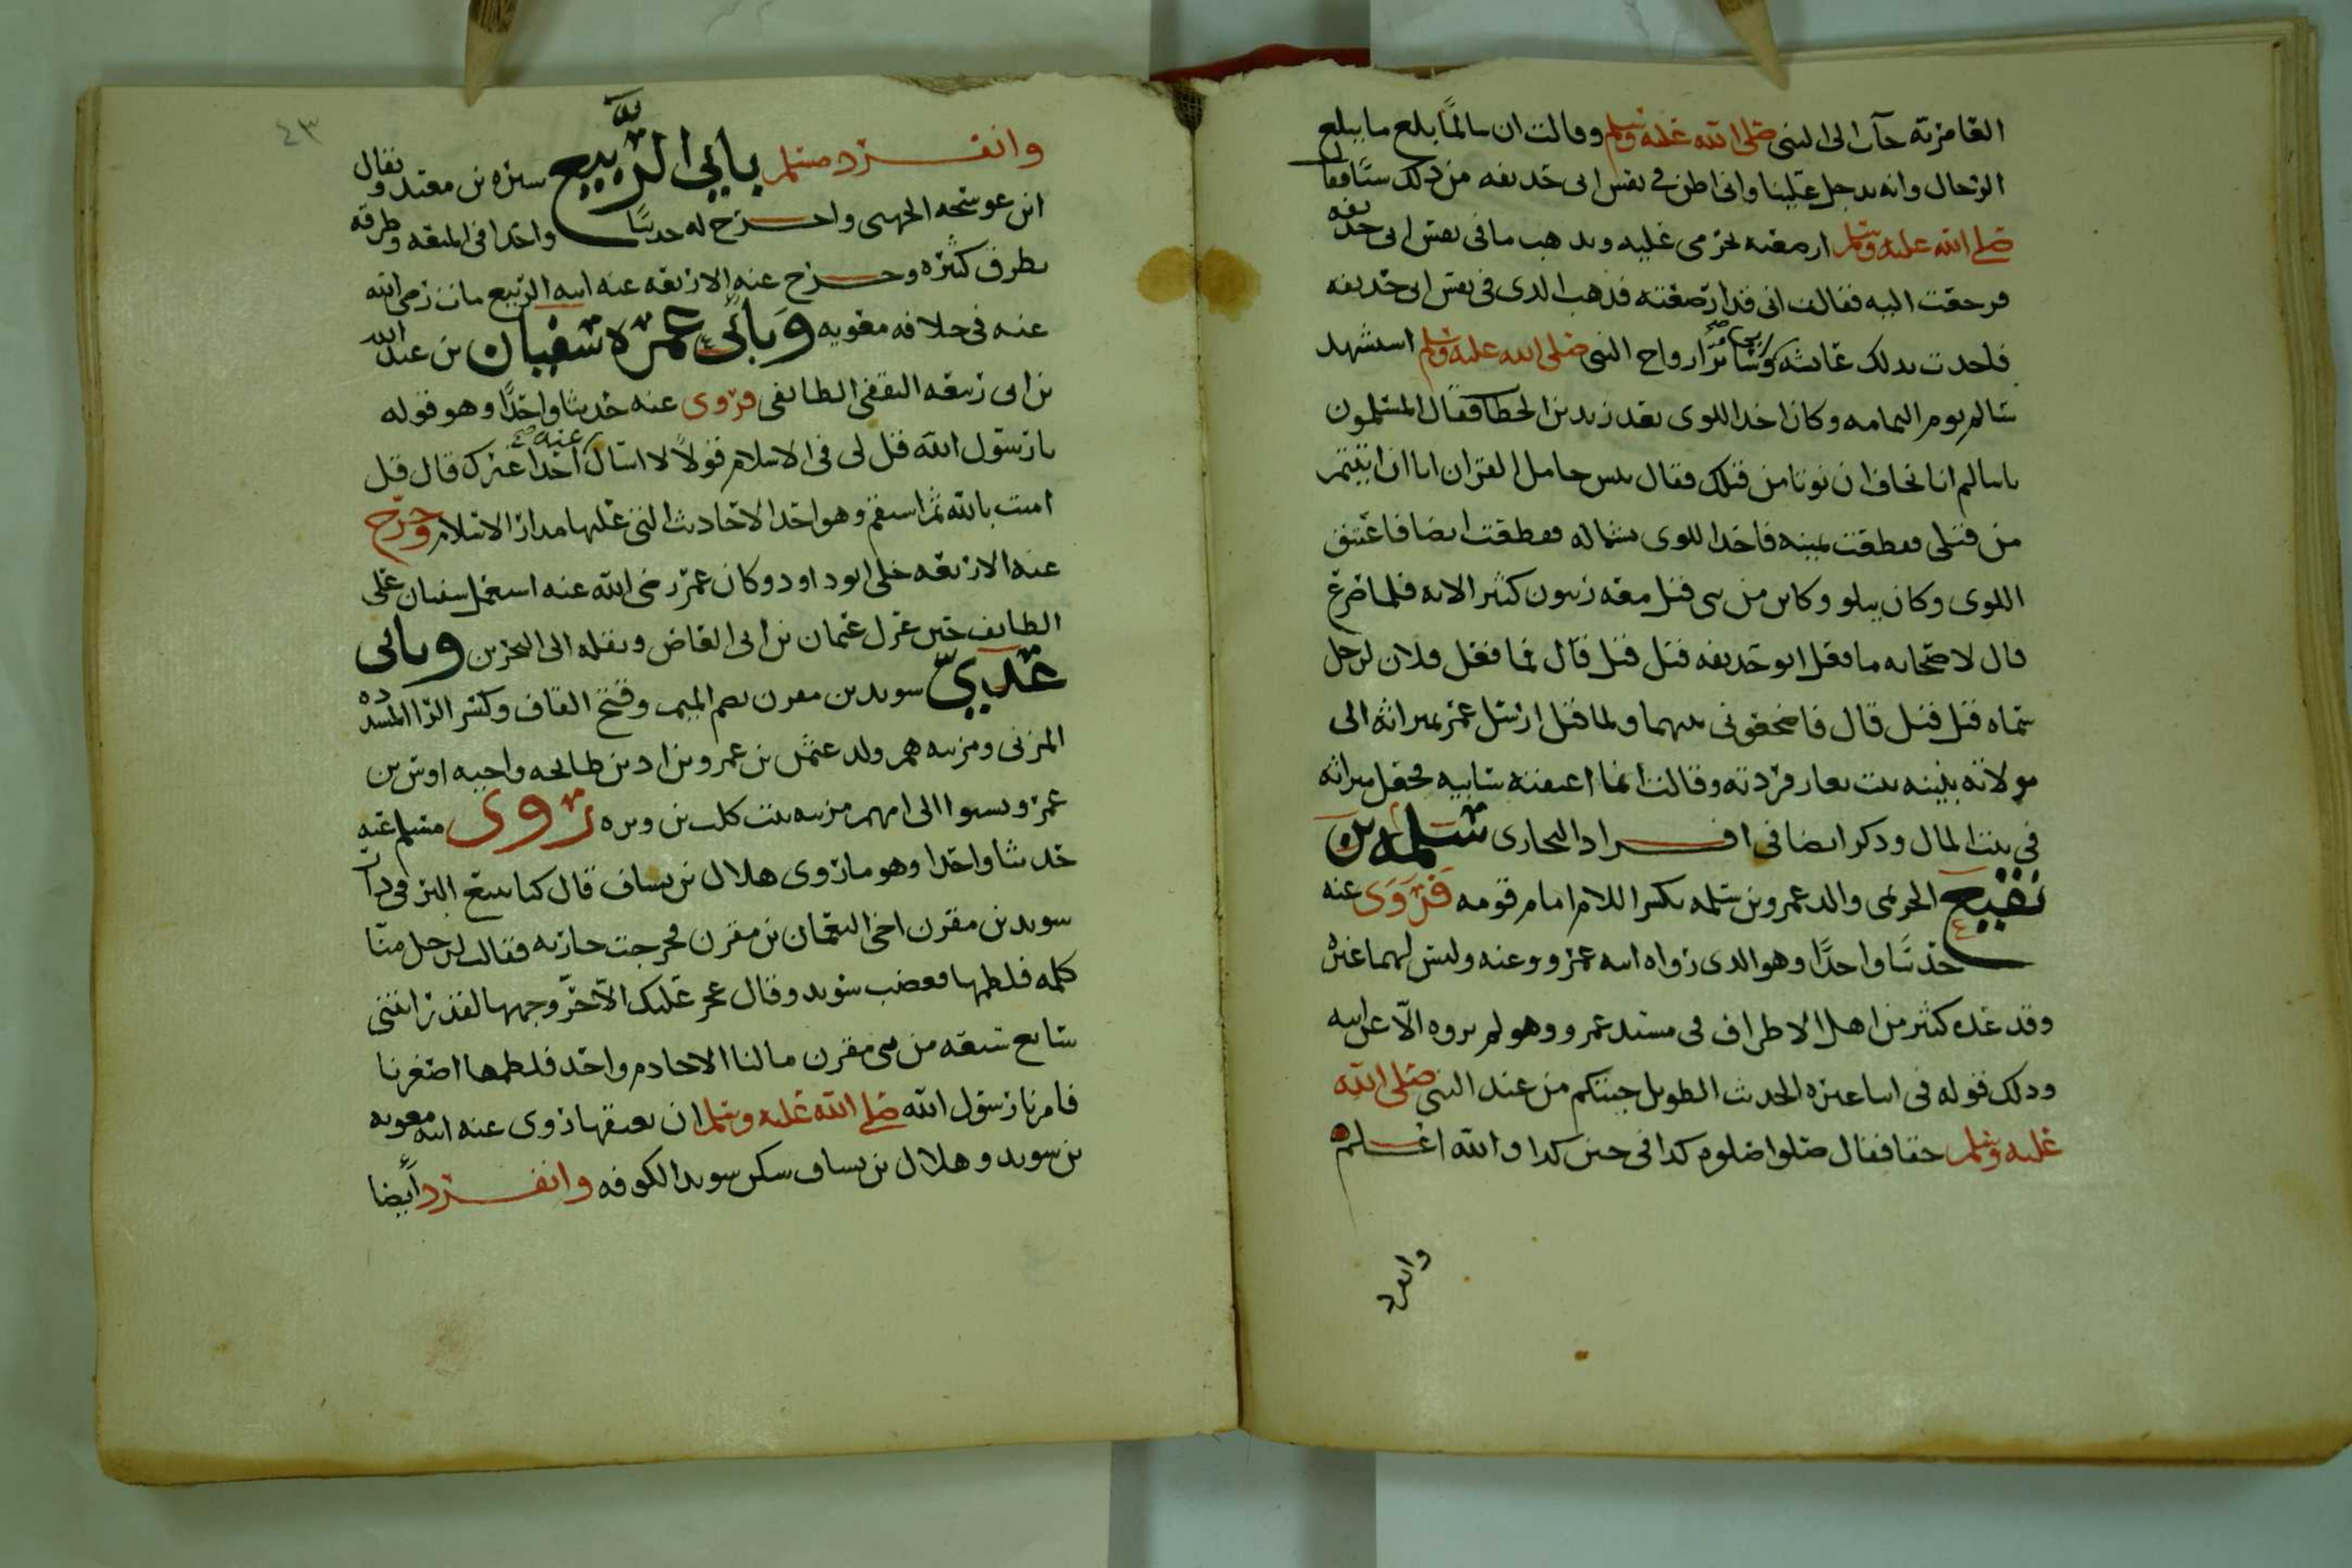 العامرية جآت الى النبي صلى الله عليه وسلم وقالت ان سالمًا بلغ ما يبلغ
الرجال وانه يدخل علينا واني اظن في نفس ابي حذيفه من ذلك شيًا فقال
صلى الله عليه وسلم ارضعيه تحرمي عليه ويذهب ما في نفس ابي حذيفه
فرجعت اليه فقالت اني قد ارضعته فذهب الذي في نفس ابي حذيفه
فاخذت بذلك عائشه وسائر ازواج النبي صلى الله عليه وسلم استشهد
سالم يوم اليمامه وكان اخذ اللوى بعد زيد بن الخطاب فقال المسلمون
يا سالم انا نخاف ان نوتا من قبلك فقال بئس حامل القران انا ان اتيتم
من قبلي فقطعت يمينه فاخذ اللوى بشماله فقطعت ايضا فاعتنق
اللوى وكان يتلو وكاين من نبي قتل معه ربيون كثير الايه فلما صرع
قال لاصحابه ما فعل ابو حذيفه قيل قتل قال فما فعل فلان لرجل
سماه قيل قتل قال فاضجعوني بينهما ولما قتل ارسل عمر بميراثه الى
مولاته بثينه بنت يعار فردته وقالت انما اعتقته سايبه فجعل ميراثه
في بيت المال وذكر ايضا في افراد البخاري سلمه بن
نفيع الجرمي والد عمرو بن سلمه بكسر اللام امام قومه فَرَوَى عنه
حديثًا واحدًا وهو الذي رواه ابنه عمرو وعنه وليس لهما غيره
وقد عده كثير من اهل الاطراف في مسند عمرو وهو لم يروه الّا عن ابيه
وذلك قوله في اثنا عشره الحديث الطويل جيتكم من عند النبي صلى الله
عليه وسلم حقا فقال صلوا صلوة كذا في حين كذا والله اعلم
وانفرد
٤٣
وانفرد مسلم بابي الرَّبيع سبره بن معبد ويقال
ابن عوسجه الجهني واخرج له حديثًا واحدا في المتعه وطرقه
بطرق كثيره وخرج عنه الاربعه عنه ابنه الربيع مات رضي الله
عنه في خلافه معويه وَبابي عمره سفيان بن عبد الله
بن ابي ربيعه الثقفي الطائفي فروى عنه حديثا واحدًا وهو قوله
يا رسول الله قل لي في الاسلام قولًا لا اسال عنه احدا غيرك قال قل
امنت بالله ثم استقم وهو احد الاحاديث التي عليها مدار الاسلام وخرج
عنه الاربعه خلى ابو داود وكان عمر رضي الله عنه استعمل سفيان على
الطائف حين عزل عثمان بن ابي العاص ونقله الى البحرين وبابي
عَدِيّ سويد بن مقرن بضم الميم وفتح القاف وكسر الرا المشدده
المزني ومزينه هم ولد عثمن بن عمرو بن اد بن طابخه واخيه اوس بن
عمرو نسبوا الى امهم مزينه بنت كلب بن وبره روى مسلم عنه
حديثا واحدا وهو ما روى هلال بن يساف قال كنا نبيع البز في دار
سويد بن مقرن اخي النعمان بن مقرن فخرجت جاريه فقالت لرجل منّا
كلمه فلطمها فغضب سويد وقال عجز عليك الّا حرّ وجهها لقد رايتني
سابع سبعه من بني مقرن ما لنا الا خادم واحد فلطمها اصغرنا
فامرنا رسول الله صلى الله عليه وسلم ان نعتقها روى عنه ابنه معويه
بن سويد وهلال بن يساف سكن سويد الكوفه وانفرد أيضا